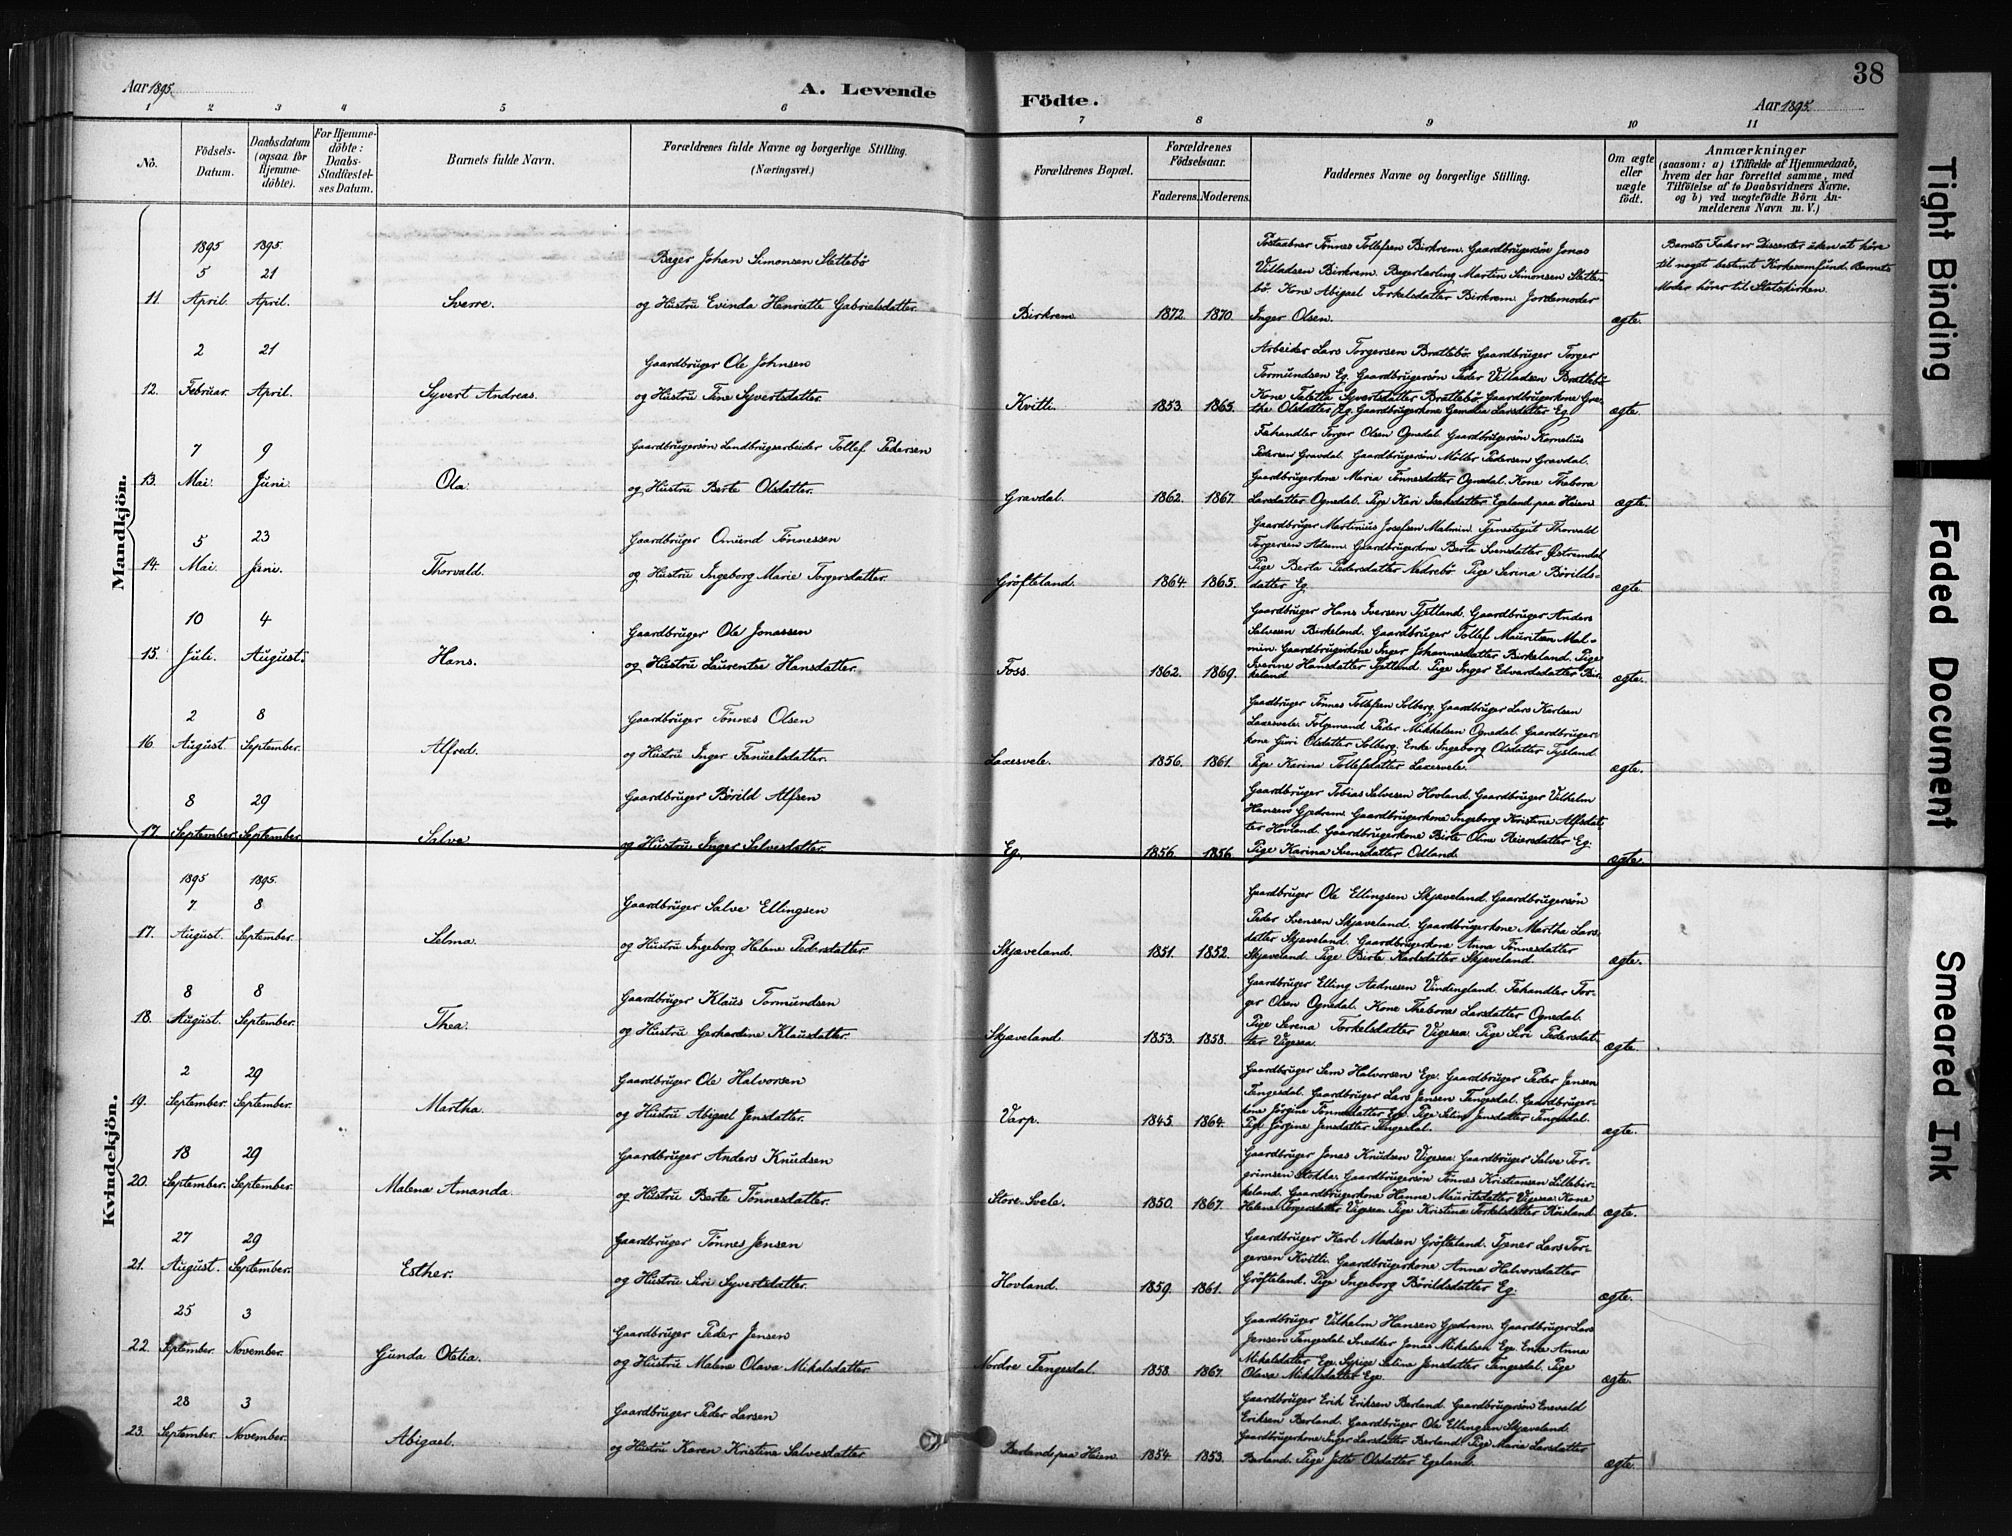 38
Aar 1895.
A. Levende
Födte.
Aar 1895.
1 2 3 4 5 6 7 8 9 10 11
No.
Födsels-Datum.
Daabsdatum (ogsaa for Hjemme-döbte).
For Hjemme-döbte: Daabs-Stadfæstel-ses Datum.
Barnets fulde Navn.
Forældrenes fulde Navne og borgerlige Stilling. (Næringsvei.)
Forældrenes Bopæl.
Forældrenes Födselsaar.
Faderens. Moderens.
Faddernes Navne og borgerlige Stilling.
Om ægte eller uægte födt.
Anmærkninger
(saasom: a) i Tilfælde af Hjemmedaab,
hvem der har forrettet samme, med
Tilföielse af to Daabsvidners Navne,
og b) ved uægtefödte Börn An-
melderens Navn m. V.)
Mandkjön.
1895 1895.
5 21 Bager Johan Simonsen Slettebö
11. April. April. Sverre. og Hustru Evinda Henriette Gabrielsdatter. Birkrem 1872. 1870.
Postaabner Tønnes Tollefsen Birkrem. Gaardbrugersøn Jonas
Villadsen Birkrem. Bagerlærling Martin Simonsen Slette-
bö. Kone Abigael Torkelsdatter Birkrem. Jordemoder
Inger Olsen. ægte.
Barnets Fader er Dissenter uden at höre
til noget bestemt Kirkesamfund. Barnets
Moder hörer til Statskirken.
2 21 Gaardbruger Ole Johnsen
12. Februar. April. Syvert Andreas. og Hustru Tine Syvertsdatter. Kvitti. 1853. 1865.
Arbeider Lars Torgersen Brattebö. Gaardbruger Torger
Tormundsen Eg. Gaardbrugersøn Peder Villadsen Brattebö
Kone Talette Syvertsdatter Brattebö. Gaardbrugerkone Gre-
the Olsdatter Eg. Gaardbrugerkone Gemalie Larsdatter Eg. ægte.
7 9 Gaardbrugersøn Landbrugsarbeider Tollef Pedersen
13. Mai. Juni. Ola. og Hustru Berte Olsdatter. Gravdal. 1862. 1867.
Fæhandler Torger Olsen Ognedal. Gaardbrugersøn Kornelius
Pedersen Gravdal. Gaardbrugersøn Möller Pedersen Gravdal.
Gaardbrugerkone Maria Tönnesdatter Ognedal. Kone Thebora
Larsdatter Ognedal. Pige Kari Isaksdatter Egeland paa Heien ægte.
5 23 Gaardbruger Omund Tönnessen
14. Mai. Juni. Thorvald. og Hustru Ingeborg Marie Torgersdatter. Gröfteland. 1864. 1865.
Gaardbruger Martinius Josefsen Malmin. Tjenestegut Thorvald
Torgersen Adsem. Gaardbrugerkone Berta Svensdatter Østremdal
Pige Berta Pedersdatter Nedrebö. Pige Serina Börilds-
datter Eg. ægte.
10 4 Gaardbruger Ole Jonassen
15. Juli. August. Hans. og Hustru Laurentse Hansdatter. Foss. 1862. 1869.
Gaardbruger Hans Iversen Tjetland. Gaardbruger Anders
Salvesen Birkeland. Gaardbruger Tollef Mauritsen Mal-
min. Gaardbrugerkone Inger Johannesdatter Birkeland. Pige
Iverine Hansdatter Tjetland. Pige Inger Edvardsdatter Bir-
keland. ægte.
2 8 Gaardbruger Tönnes Olsen
16. August. September. Alfred. og Hustru Inger Fanuelsdatter. Laxesvele. 1856. 1861.
Gaardbruger Tönnes Tollefsen Solberg. Gaardbruger Lars Karlsen
Laxesvele. Folgemand Peder Mikkelsen Ognedal. Gaardbruger-
kone Guri Olsdatter Solberg. Enke Ingeborg Olsdatter Tysland
Pige Karina Tollefsdatter Laxesvele. ægte.
8 29 Gaardbruger Börild Alfsen
17. September September Salve og Hustru Inger Salvesdatter. Eg. 1856 1856
Gaardbruger Tobias Salvesen Hovland. Gaardbruger Vilhelm
Hansen Gjedrem. Gaardbrugerkone Ingeborg Kristine Alfsdat-
ter Hovland. Gaardbrugerkone Birte Oline Reiersdatter Eg.
Pige Karina Svensdatter Odland. ægte.
Kvindekjön.
1895 1895.
7 8 Gaardbruger Salve Ellingsen
17. August. September. Selma. og Hustru Ingeborg Helene Pedersdatter. Skjæveland. 1851. 1852.
Gaardbruger Ole Ellingsen Skjæveland. Gaardbrugersøn
Peder Svensen Skjæveland. Gaardbrugerkone Martha Lars-
datter Skjæveland. Gaardbrugerkone Anna Tönnesdatter
Skjæveland. Pige Birte Karlsdatter Skjæveland. ægte.
8 8 Gaardbruger Klaus Tormundsen
18. August. September. Thea. og Hustru Gerhardine Klausdatter. Skjæveland. 1853. 1858.
Gaardbruger Elling Aadnesen Vindingland. Fæhandler Tor-
ger Olsen Ognedal. Kone Thebora Larsdatter Ognedal.
Pige Serena Torkelsdatter Vigesaa. Pige Siri Pedersdat-
ter Vigesaa. ægte.
2 29 Gaardbruger Ole Halvorsen
19. September. September. Martha. og Hustru Abigael Jensdatter. Varp. 1845. 1864.
Gaardbruger Sem Halvorsen Ege. Gaardbruger Peder Jensen
Tengesdal. Gaardbruger Lars Jensen Tengesdal. Gaardbruger-
kone Jörgine Tönnesdatter Ege. Pige Seline Jensdatter Tengesdal.
Pige Jörgine Jensdatter Tengesdal. ægte.
18 29 Gaardbruger Anders Knudsen
20. September. September. Malena Amanda. og Hustru Berte Tönnesdatter. Store-Svele. 1850. 1867.
Gaardbruger Jonas Knudsen Vigesaa. Gaardbruger Salve Tor-
grimsen Stokka. Gaardbrugersøn Tönnes Kristensen Lillebir-
keland. Gaardbrugerkone Hanne Mauritsdatter Vigesaa. Kone
Helene Torgersdatter Vigesaa. Pige Kristina Torkelsdatter Röisland ægte.
27 29 Gaardbruger Tönnes Jensen
21. August. September. Esther. og Hustru Siri Syvertsdatter. Hovland. 1859. 1861.
Gaardbruger Karl Madsen Gröfteland. Tjener Lars Tor-
gersen Kvitti. Gaardbrugerkone Anna Halvorsdatter
Gröfteland. Pige Ingeborg Börildsdatter Eg. ægte.
25 3 Gaardbruger Peder Jensen
22 September. November. Gunda Otetia. og Hustru Malene Olava Mikalsdatter. Nordre Tengesdal. 1858. 1867.
Gaardbruger Vilhelm Hansen Gjedrem. Gaardbruger Lars
Jensen Tengesdal. Snedker Jonas Mikalsen Ege. Enke Anna
Mikelsdatter Ege. Sypige Seline Jensdatter Tengesdal. Pige
Olava Mikalsdatter Ege. ægte.
28 3 Gaardbruger Peder Larsen
23. September. November. Abigael. og Hustru Karen Kristine Salvesdatter. Berland paa Heien. 1854 1853.
Gaardbruger Erik Eriksen Berland. Gaardbrugersøn Enevald
Eriksen Berland. Gaardbruger Ole Ellingsen Skjæveland.
Gaardbrugerkone Inger Larsdatter Berland. Pige Maria Larsdatter
Berland. Pige Jette Olsdatter Egeland. ægte.
Tight Binding
Faded Document
Smeared Ink